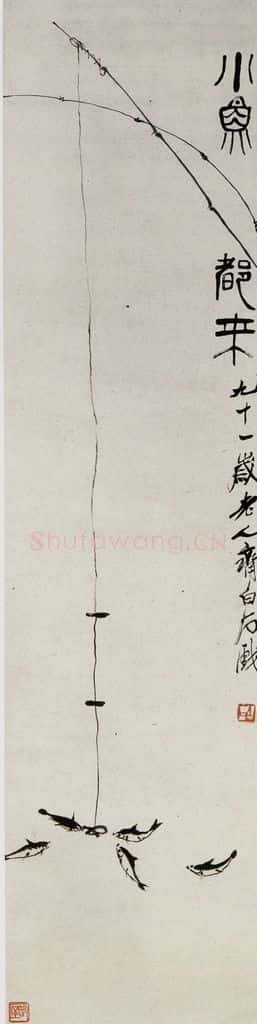 小魚都来
九十一歲老人齊白石戲
Shufawang.CN